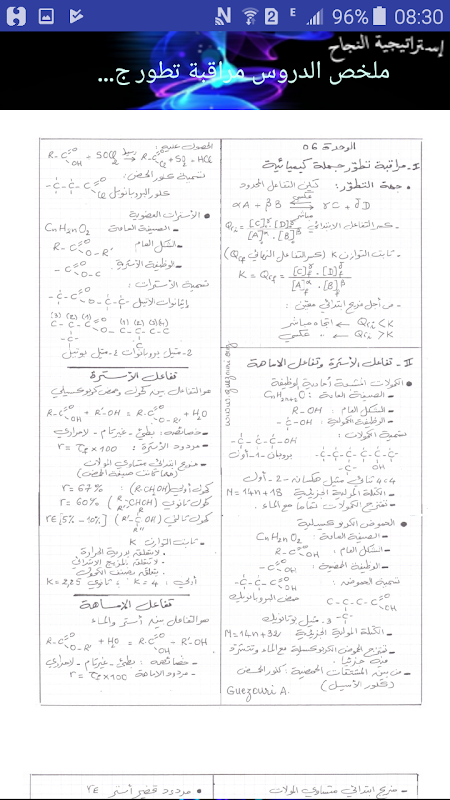 96% 08:30
إستراتيجية النجاح
ملخص الدروس مراقبة تطور ج...
الوحدة 06
I- مراقبة تطور جملة كيميائية
• جهة التطور: كتابة التفاعل المحدود
αA + βB ⇌ γC + δD
- كسر التفاعل الابتدائي Qri = [C]^γ·[D]^δ / [A]^α·[B]^β
- ثابت التوازن K (كسر التفاعل النهائي Qrf)
K = Qrf = [C]f^γ·[D]f^δ / [A]f^α·[B]f^β
- من أجل مزيج ابتدائي معين:
Qri < K ← اتجاه مباشر
Qri > K ← .. عكسي
II- تفاعل الأسترة وتفاعل الإماهة
• الكحولات المشبعة أحادية الوظيفة
- الصيغة العامة: CnH2n+2O
- الشكل العام: R-OH
- الوظيفة الكحولية: -C-OH
تسمية الكحولات:
-C-C-C-OH
بروبان-1-أول
4،4 ثنائي مثيل هكسان-2-أول
- الكتلة المولية الجزيئية M=14n+18
- تمتزج الكحولات تماما مع الماء.
• الحموض الكربوكسيلية
- الصيغة العامة: CnH2nO2
- الشكل العام: R-C=O OH
- الوظيفة الحمضية: -C=O OH
تسمية الحموض: -C-C-C=O OH
حمض البروبانويك
C-C-C-C=O OH
3-مثيل بوتانويك
- الكتلة المولية الجزيئية M=14n+32
- تمتزج الحموض الكربوكسيلية مع الماء وتتشرد فيه جزئيا.
- من بين المشتقات الحمضية: كلور الحمض (كلور الأسيل)
Guezouri A.
www.guezouri.org
الحصول عليه:
R-C=O OH + SOCl2 → R-C=O Cl + SO2 + HCl
تسمية كلور الحمض:
-C-C-C=O Cl
كلور البروبانويل
• الأسترات العضوية
- الصيغة العامة CnH2nO2
- الشكل العام R-C=O O-R'
- الوظيفة الأسترية: -C=O O-C
تسمية الأسترات:
إيثانوات الإثيل
(3) (2) (1)
(1) (2) (3) (4)
2-مثيل بروبانوات 2-مثيل بوتيل
تفاعل الأسترة
هو التفاعل بين كحول وحمض كربوكسيلي
R-C=O OH + R'OH = R-C=O O-R' + H2O
- خصائصه: بطيء - غير تام - لاحراري
- مردود الأسترة: r = τf × 100
- مزيج ابتدائي متساوي المولات
كحول أولي (R-CH2OH): r = 67%
كحول ثانوي: r = 60%
كحول ثالثي: r∈[5%-10%]
- ثابت التوازن K
لا يتعلق بدرجة الحرارة
لا يتعلق بالمزيج الابتدائي
يتعلق بصنف الكحول
أولي: K = 4، ثانوي K = 2,25
تفاعل الإماهة
هو التفاعل بين أستر والماء
R-C=O O-R' + H2O = R-C=O OH + R'OH
- خصائصه: بطيء - غير تام - لاحراري
- مردود الإماهة r = τf × 100
- مزيج ابتدائي متساوي المولات
• مردود تحضير أستر rE